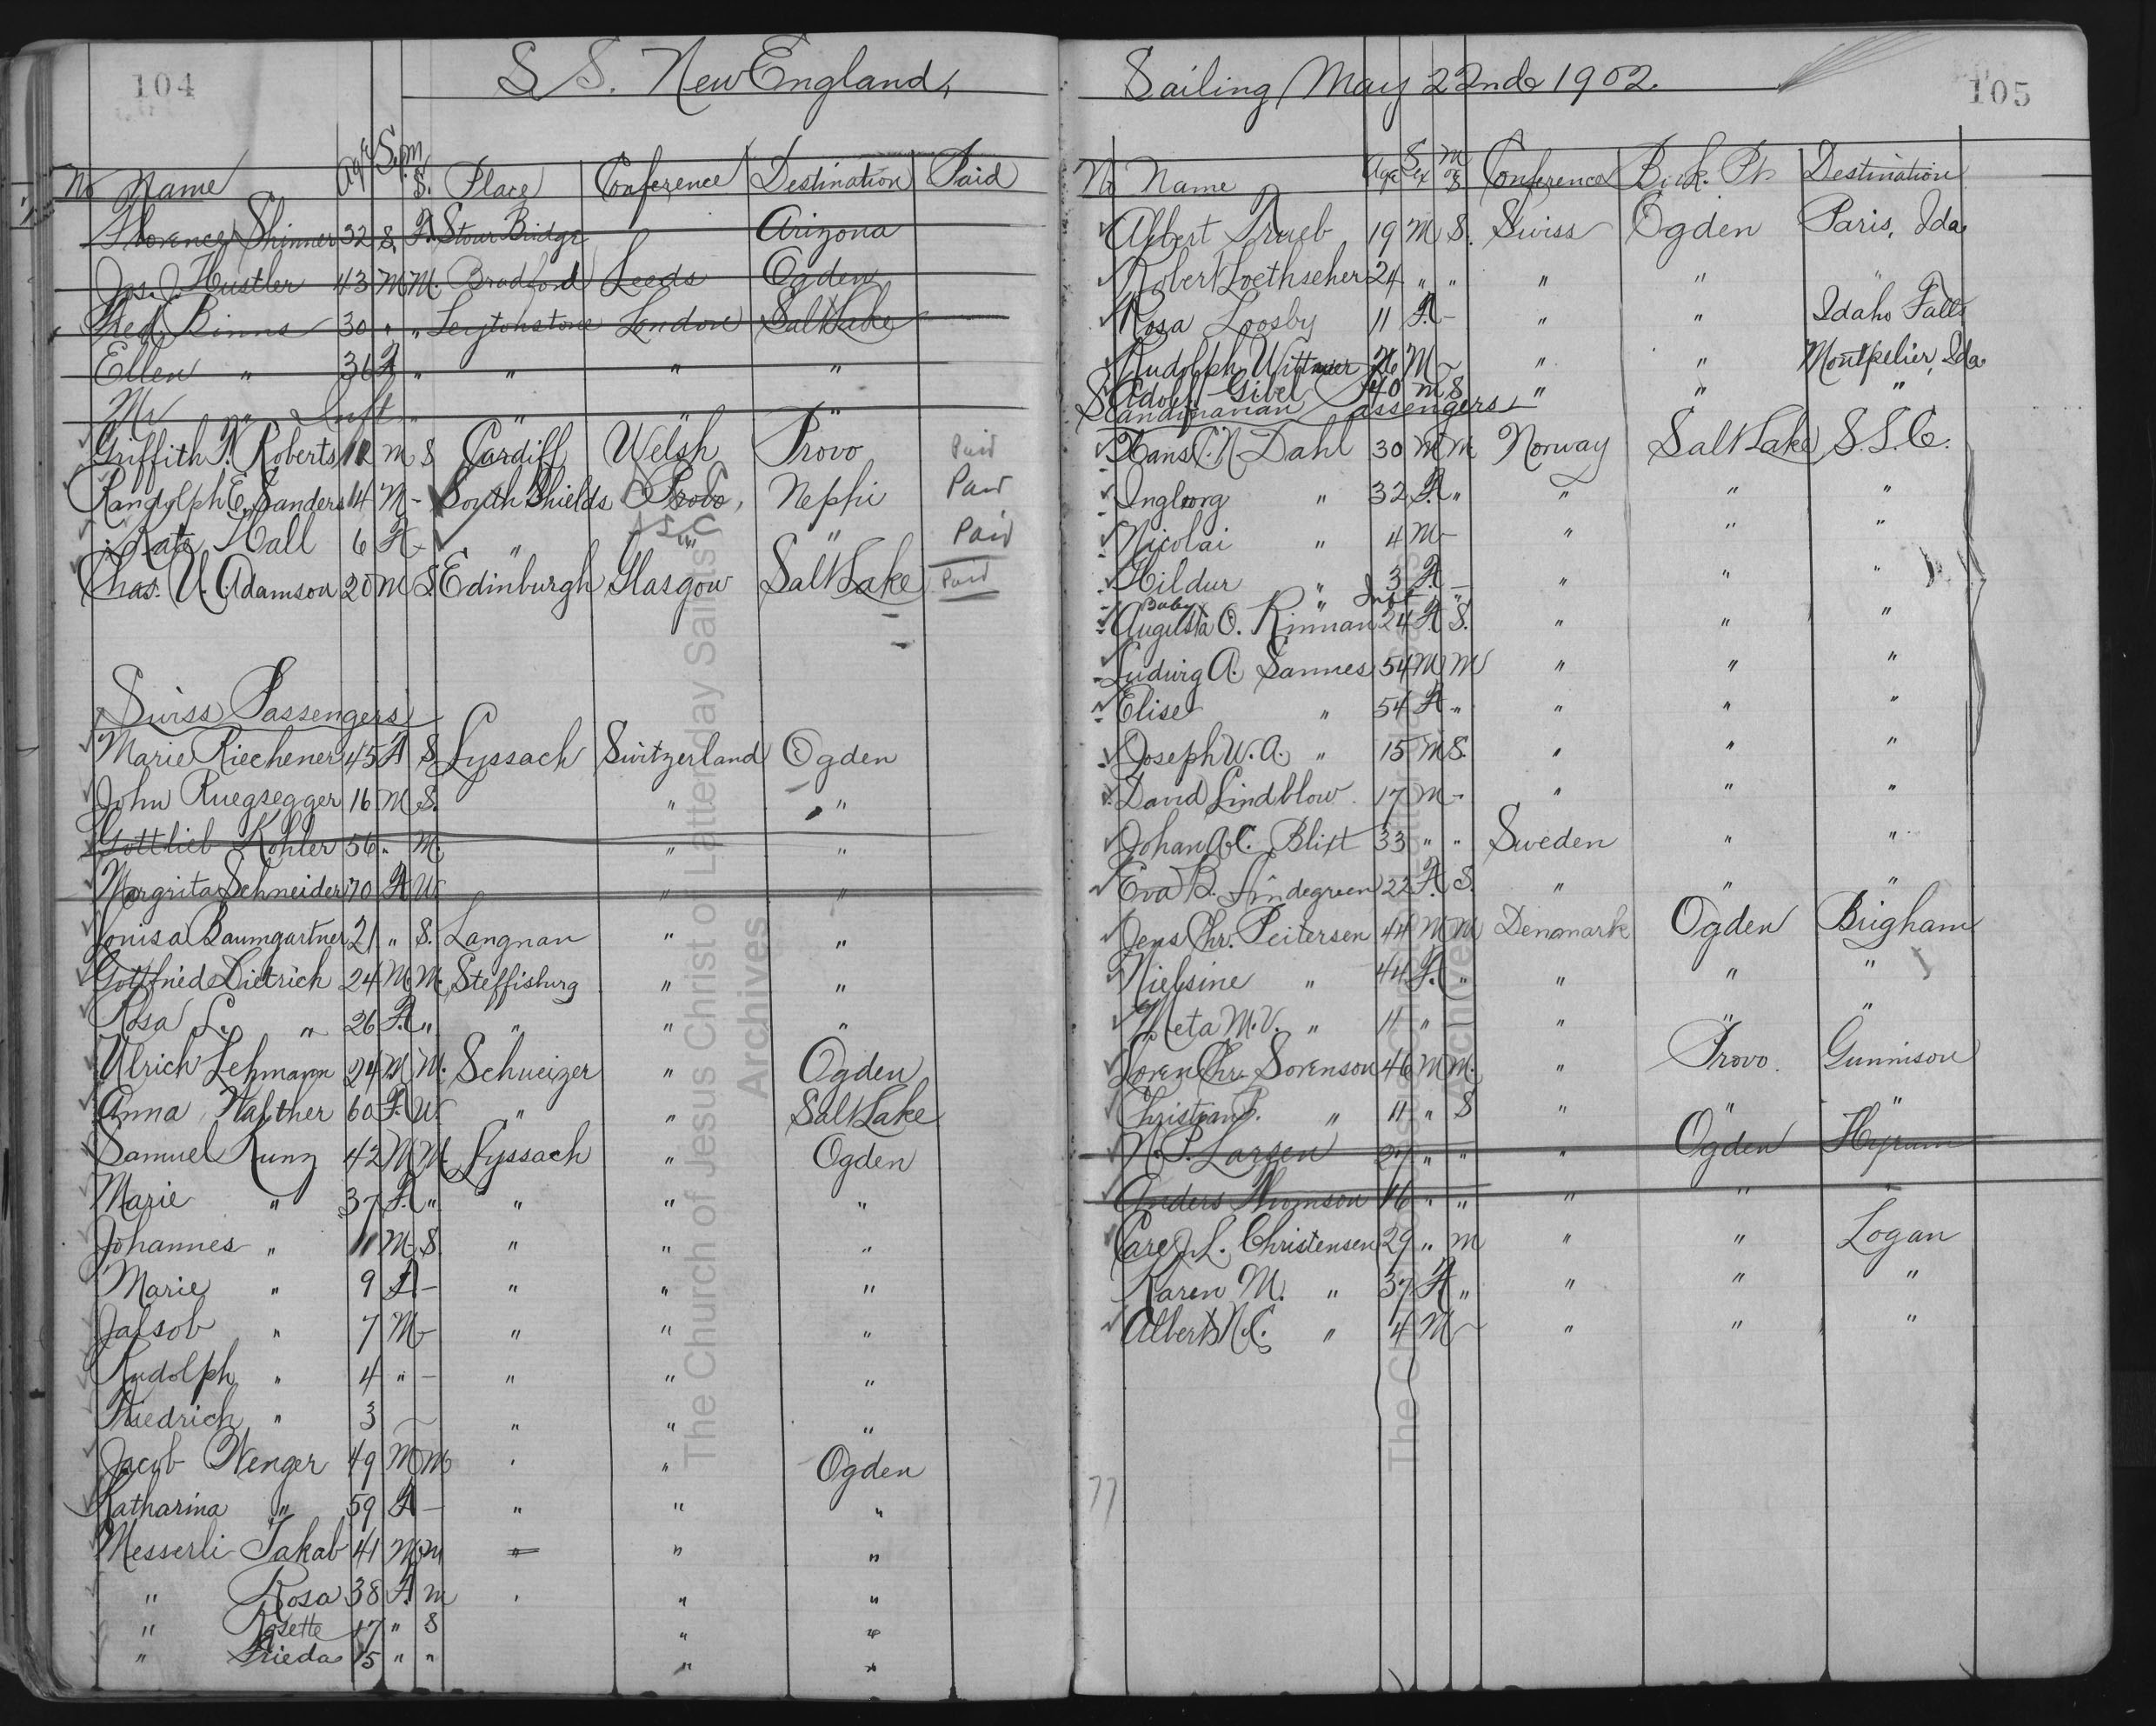 104
S.S. New England,
No Name Age S. M. S. Place Conference Destination Paid
Florence Skinner 32 S. F. Stour Bridge Arizona
Jas. J. Hustler 43 M M. Bradford Leeds Ogden
Fred Binns 30 " " Leytonstone London Salt Lake
Ellen " 36 F " " " "
Mr " Inft " " " "
Griffith Roberts 12 m S Cardiff Welsh Provo Paid
Randolph E. Sanders 14 M - South Shields Provo, Nephi Paid
Kate Hall 6 F - " " Paid
Chas. U. Adamson 20 M S. Edinburgh Glasgow Salt Lake Paid
Swiss Passengers
Marie Riechener 45 F S Lyssach Switzerland Ogden
John Ruegsegger 16 M S. " "
Gottlieb Kohler 56 " M. " "
Margrita Schneider 70 F W " "
Louisa Baumgartner 21 " S. Langnan " "
Gottfried Dietrich 24 M M. Steffisburg " "
Rosa L. " 26 F. " " " "
Ulrich Lehmann 24 M M. Schweizer " Ogden
Anna Walther 60 F. W. " " Salt Lake
Samuel Kunz 42 M M. Lyssach " Ogden
Marie " 37 F. " " " "
Johannes " 11 M S " " "
Marie " 9 F - " " "
Jakob " 7 M - " " "
Rudolph " 4 " - " " "
Friedrich " 3 - " " "
Jacob Wenger 49 M M " " Ogden
Katharina " 59 F - " " "
Messerli Jakab 41 M m " " "
" Rosa 38 F. m " " "
" Rosette 17 " S " "
" Frieda 15 " " " "
105
Sailing May 22nd 1902.
No Name Age Sex M or S Conference Destination
Albert Trueb 19 M S. Swiss Ogden Paris, Ida
Robert Loethscher 24 " " " " "
Rosa Loosby 11 F. - " " Idaho Falls
Rudolph Wittmer 26 M - " " Montpelier, Ida.
Adolf Gibel 40 m S " " "
Scandinavian Passengers
Hans C. N. Dahl 30 M m Norway Salt Lake S. L. C.
Ingborg " 32 F. " " " "
Nicolai " 4 M - " " "
Hildur " 3 F - " " "
Baby " Inft "
Augusta O. Kinnan 24 F S. " " "
Ludwig A. Sannes 54 M M " " "
Elise " 54 F " " " "
Joseph W. A. " 15 M S. " " "
David Lindblow 17 M - " " "
Johan A. C. Blixt 33 " " Sweden " "
Eva B. Lindegreen 22 F. S. " " "
Jens Chr. Peitersen 44 M M Denmark Ogden Brigham
Nielsine " 44 F. " " " "
Meta M. V. " 11 " - " " "
Soren Chr. Sorenson 46 M M. " Provo. Gunnison
Christian " 11 " S " " "
N. P. Larsen 27 " " " Ogden Hyrum
Anders Thomson 16 " " " " "
Care J. L. Christensen 29 " m " " Logan
Karen M. " 37 F " " " "
Albert N. C. " 4 M - " " "
77
The Church of Jesus Christ of Latter-day Saints
Archives